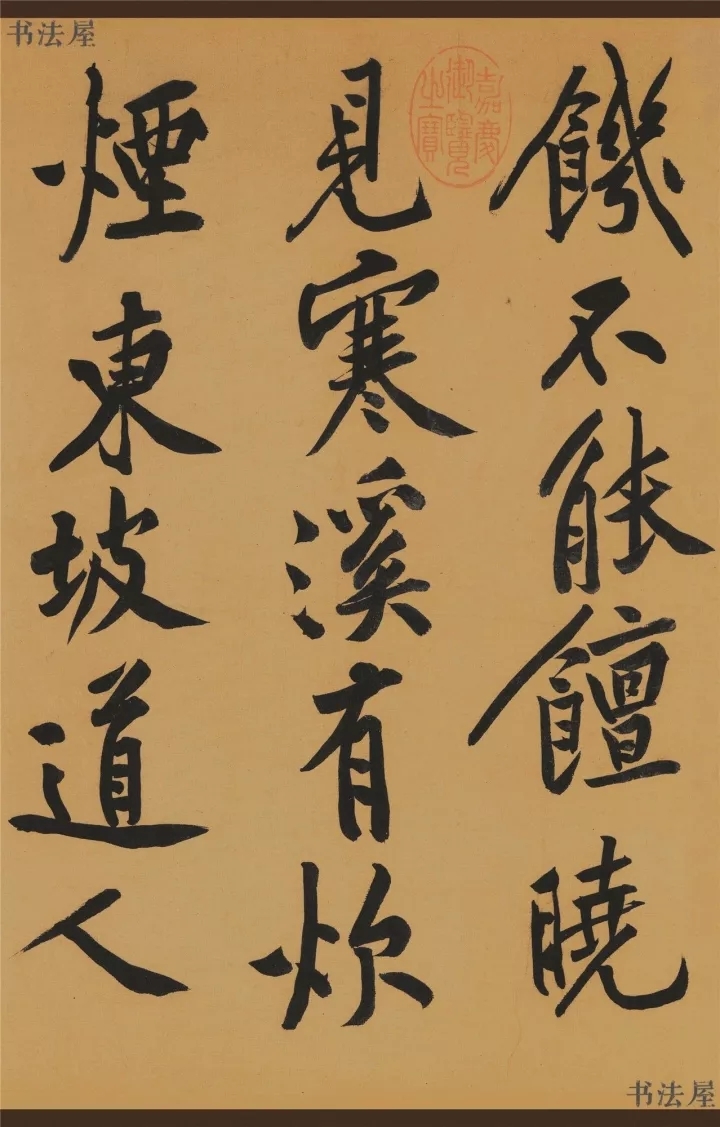 书法屋
饑不能饘曉
見寒溪有炊
煙東坡道人
嘉慶
御覽
之寶
书法屋